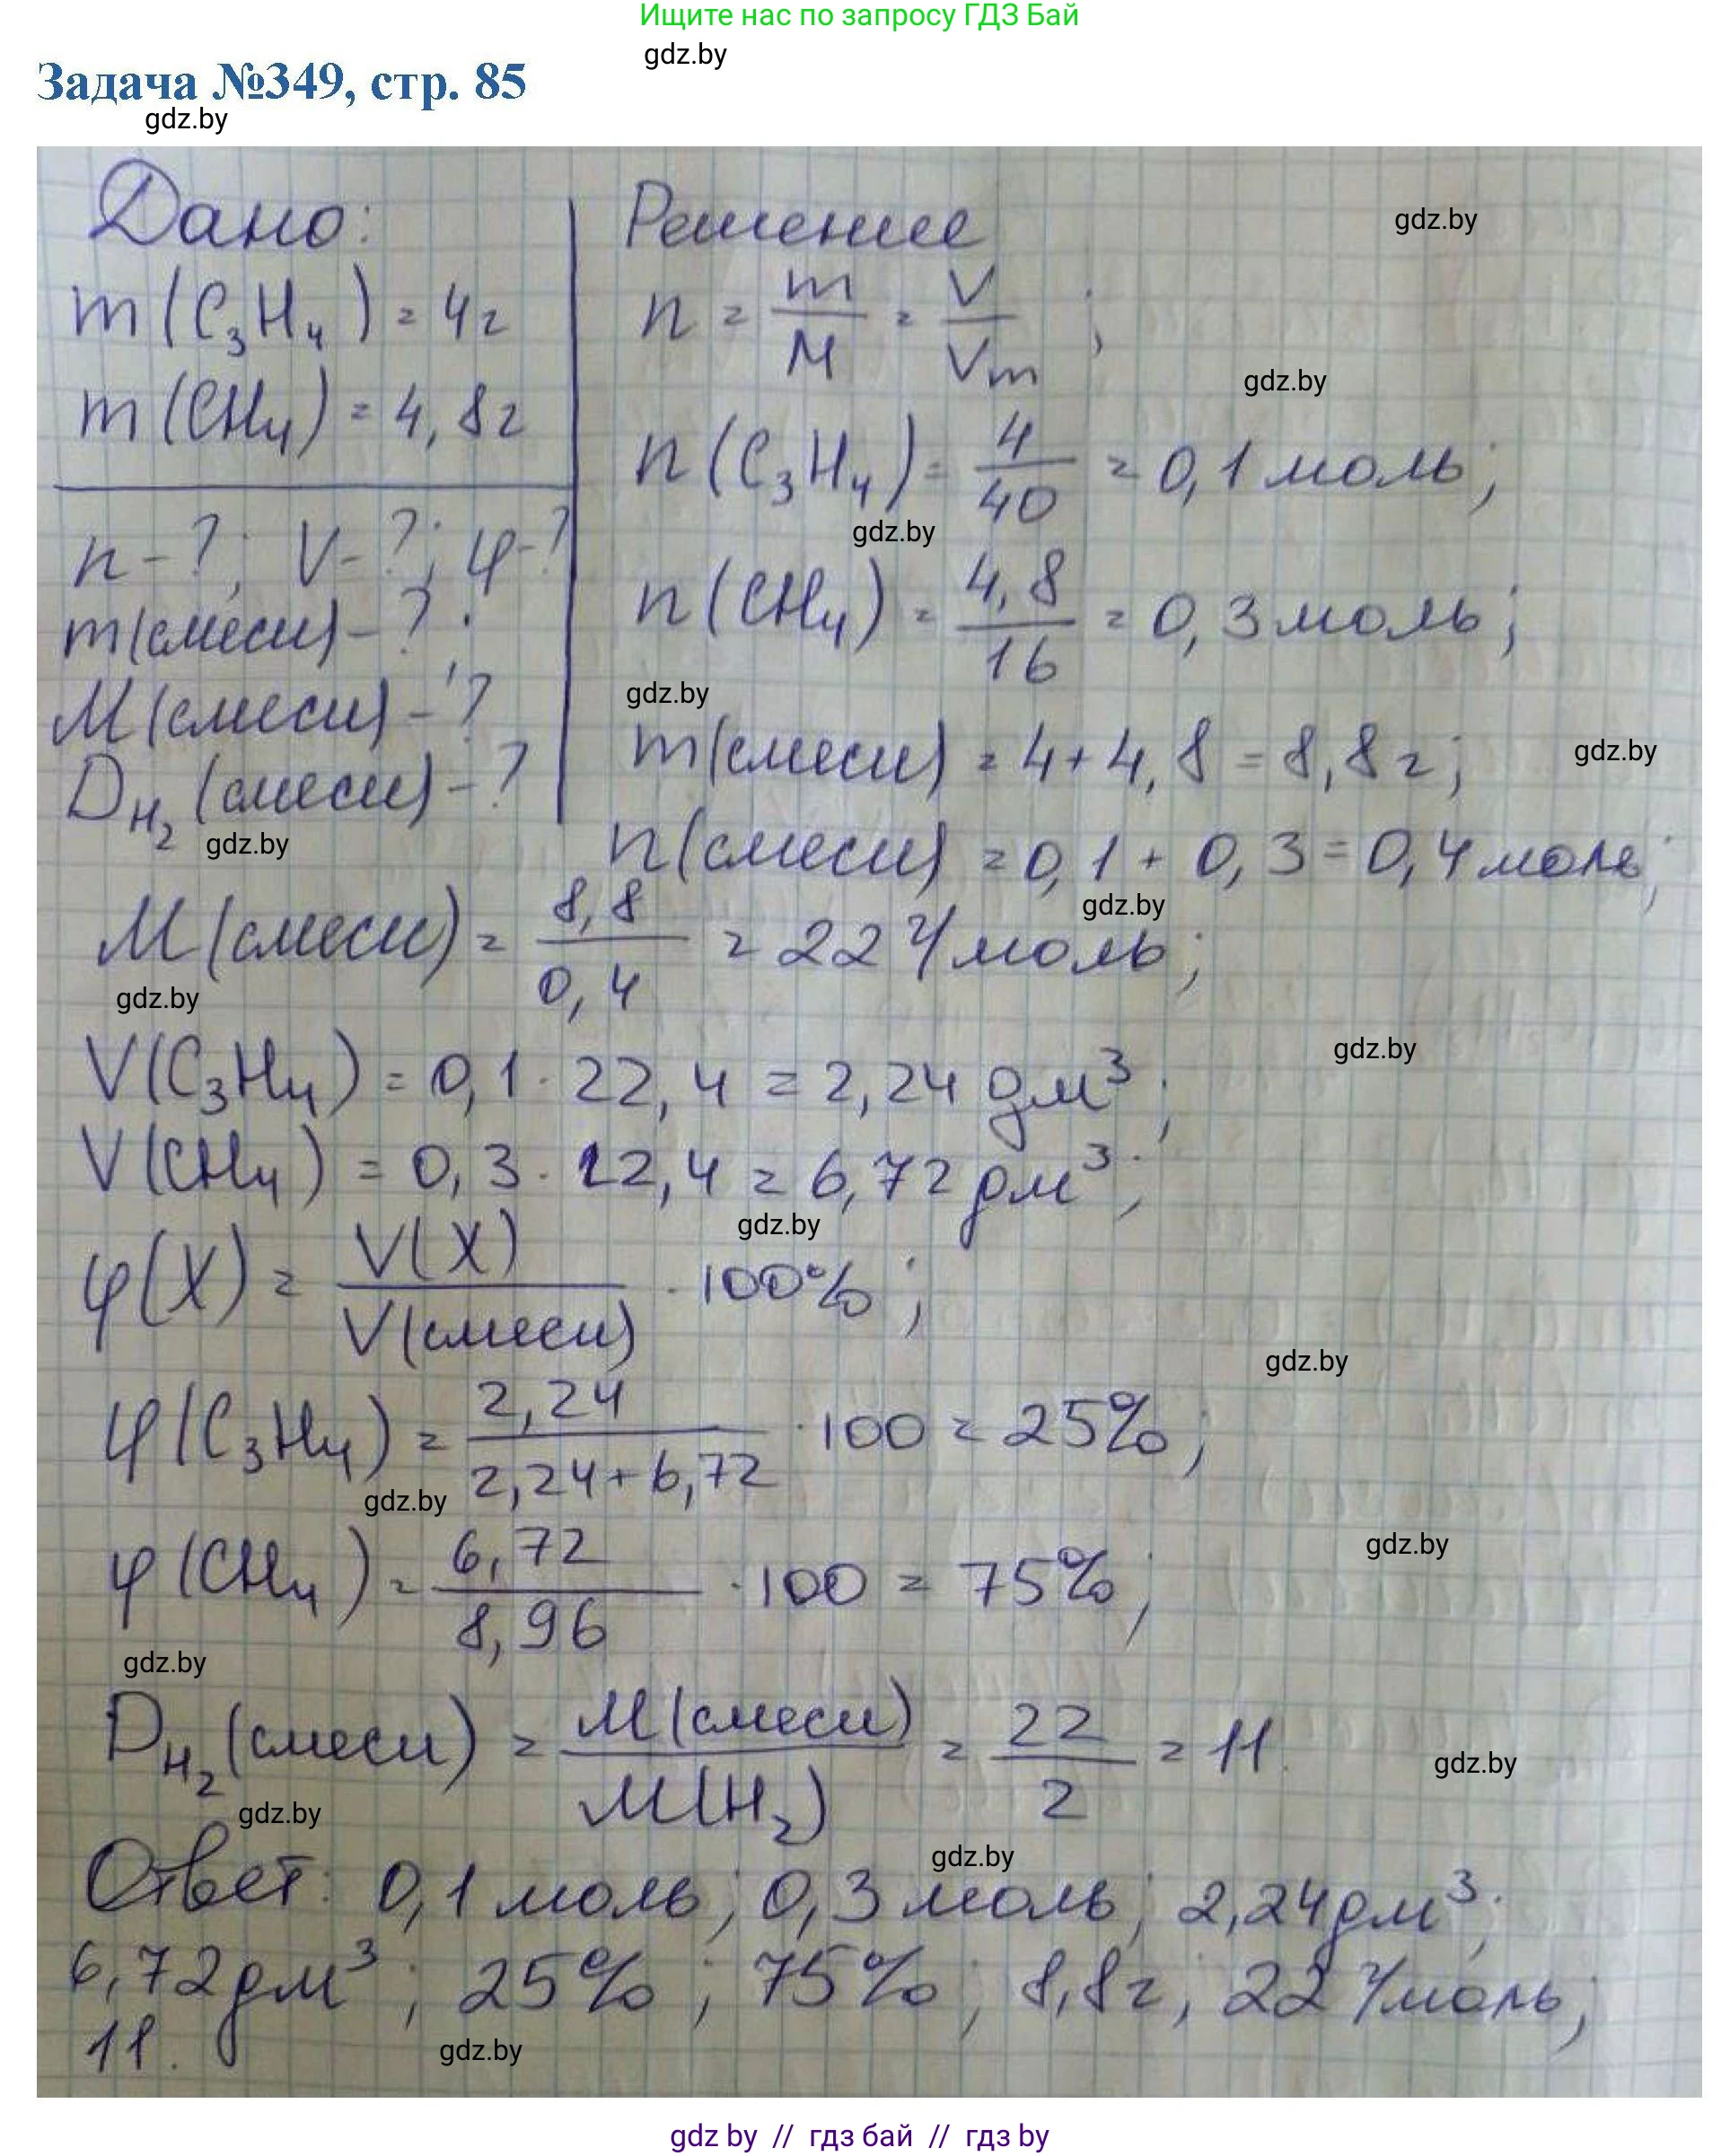 Ищите нас по запросу ГДЗ Бай
gdz.by
Задача №349, стр. 85
gdz.by
Дано:
m(C₃H₄) = 4г
m(CH₄) = 4,8г
n-?; V-?; φ-?
m(смеси)-?;
M(смеси)-?
D_H₂(смеси)-?
Решение
gdz.by
n = m/M = V/Vm;
gdz.by
n(C₃H₄) = 4/40 = 0,1 моль;
gdz.by
n(CH₄) = 4,8/16 = 0,3 моль;
gdz.by
m(смеси) = 4+4,8 = 8,8г;
gdz.by
gdz.by
n(смеси) = 0,1 + 0,3 = 0,4 моль;
gdz.by
M(смеси) = 8,8/0,4 = 22 г/моль;
gdz.by
gdz.by
V(C₃H₄) = 0,1 · 22,4 = 2,24 дм³;
V(CH₄) = 0,3 · 22,4 = 6,72 дм³;
gdz.by
φ(X) = V(X)/V(смеси) · 100%;
gdz.by
φ(C₃H₄) = 2,24/2,24+6,72 · 100 = 25%;
gdz.by
φ(CH₄) = 6,72/8,96 · 100 = 75%;
gdz.by
gdz.by
D_H₂(смеси) = M(смеси)/M(H₂) = 22/2 = 11.
gdz.by
gdz.by
gdz.by
Ответ: 0,1 моль; 0,3 моль; 2,24дм³;
6,72дм³; 25%; 75%; 8,8г; 22 г/моль;
11.
gdz.by
gdz by // гдз бай // гдз by